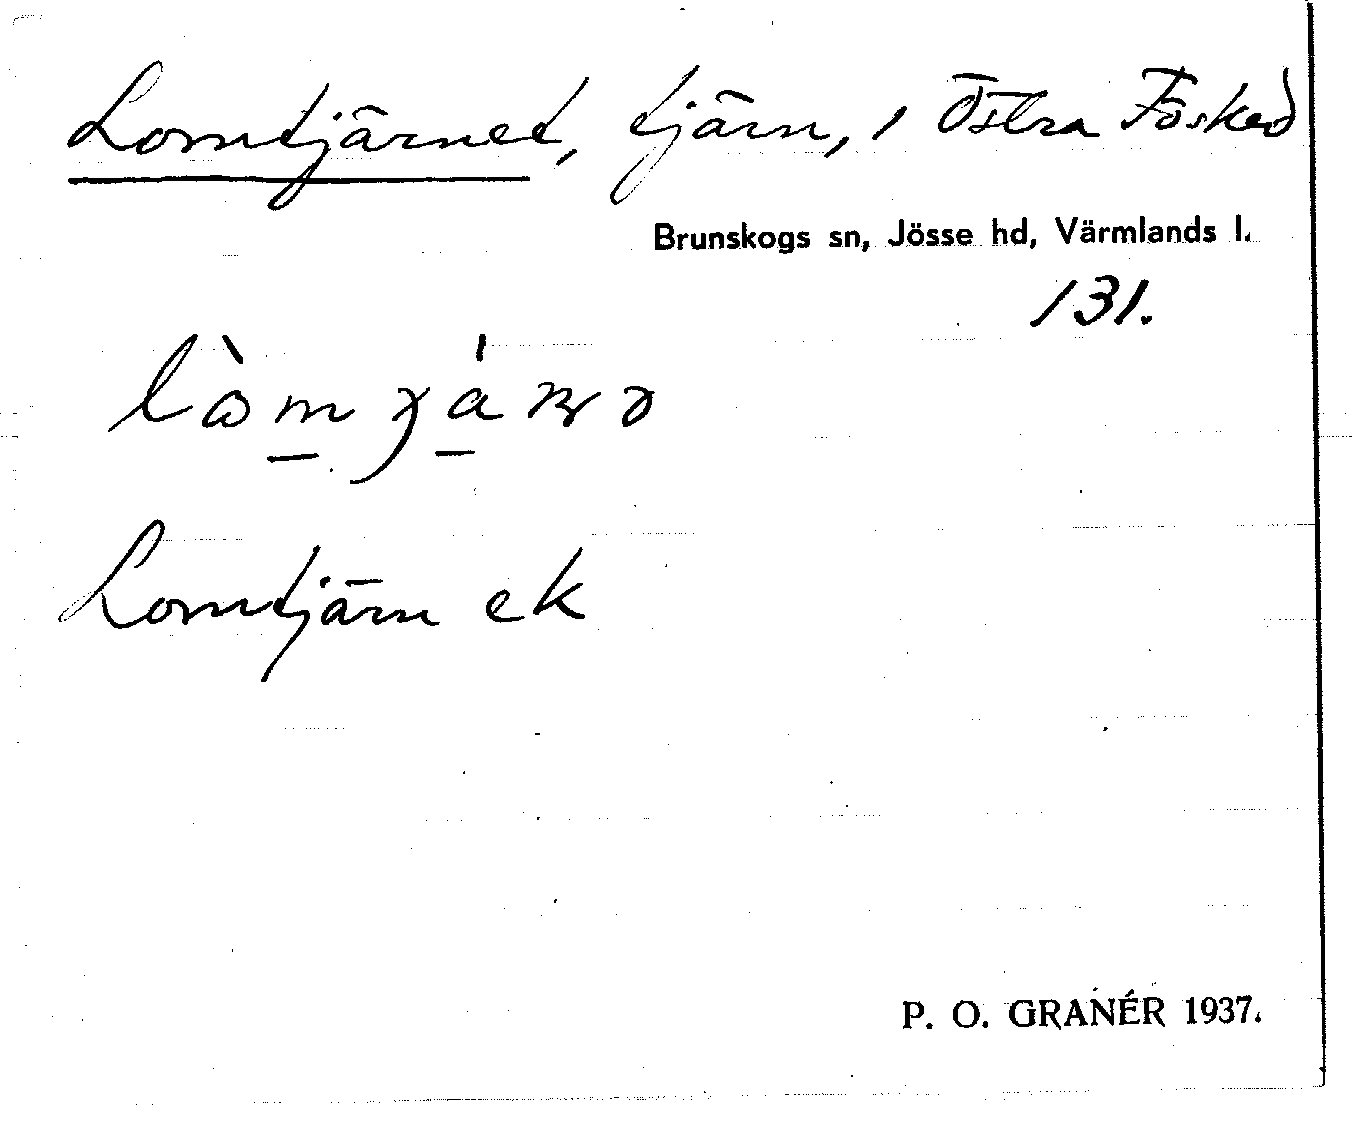 Lomtjärnet, tjärn, i Östra Fösked
Brunskogs sn, Jösse hd, Värmlands l.
131.
Lomtjärn ek
P. O. GRANÉR 1937.